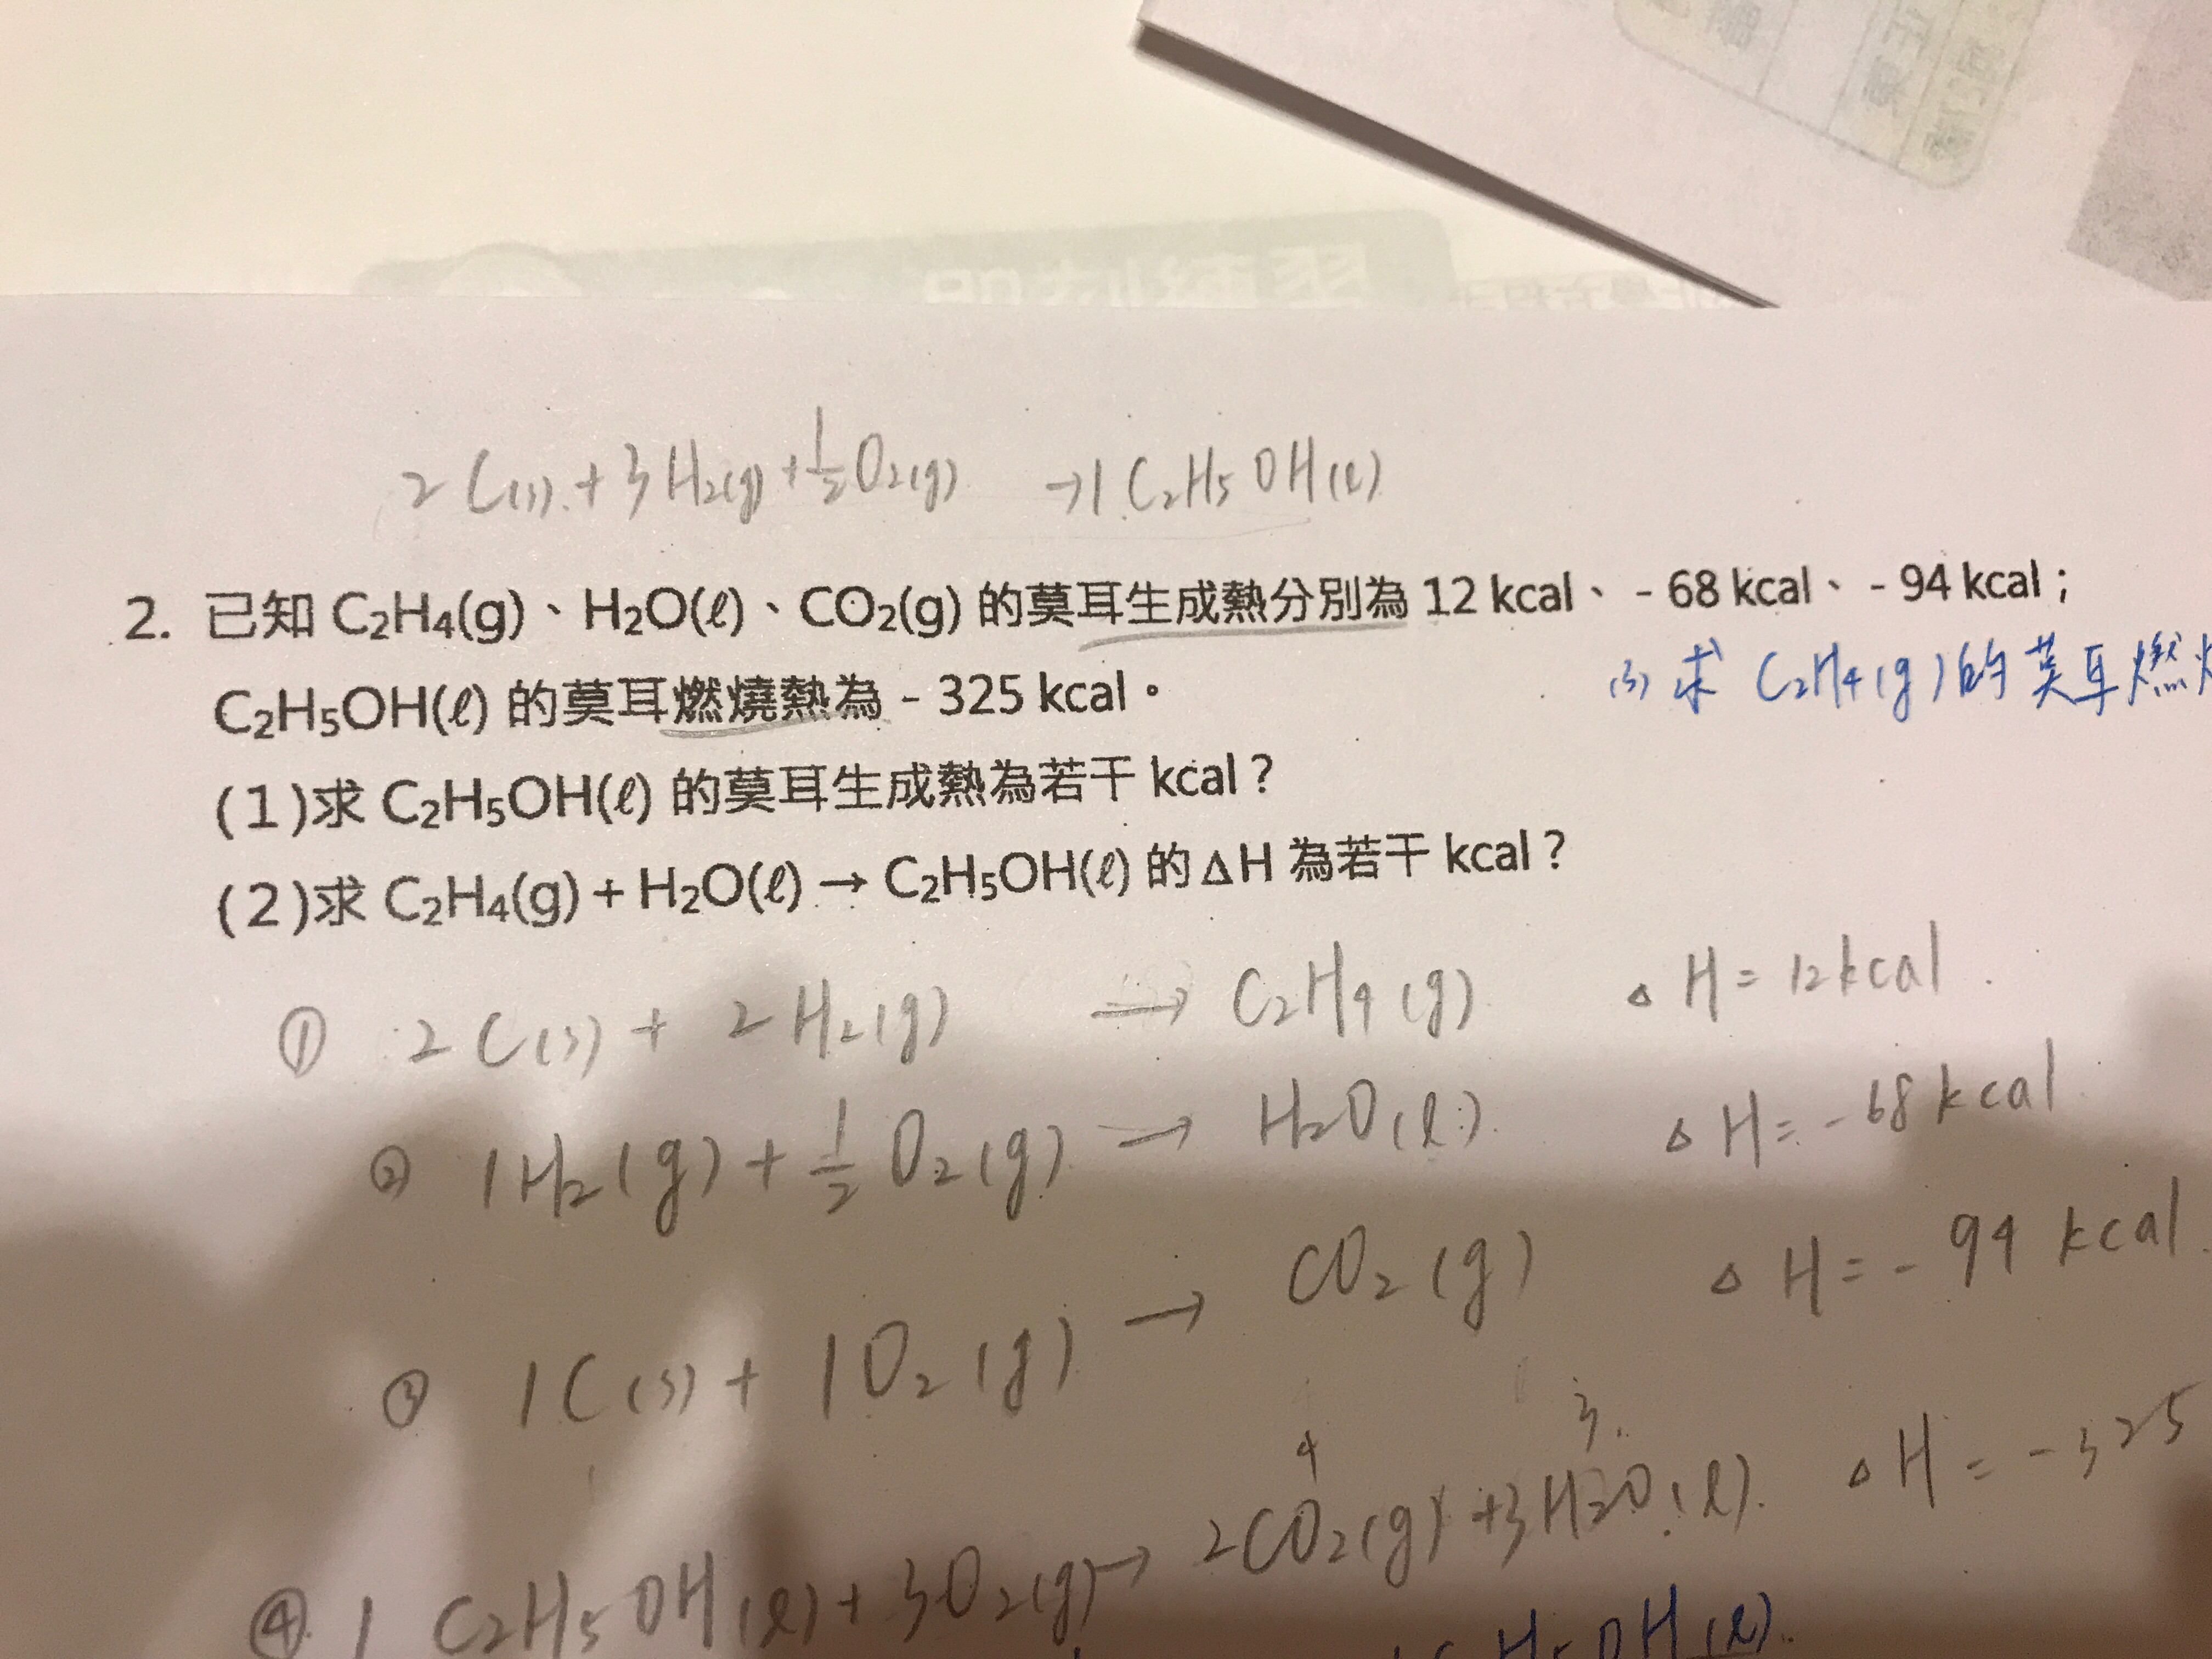 2C(s) + 3H₂(g) + 1/2 O₂(g) → 1 C₂H₅OH(l)
2. 已知 C₂H₄(g)、H₂O(ℓ)、CO₂(g) 的莫耳生成熱分別為 12 kcal、- 68 kcal、- 94 kcal；
C₂H₅OH(ℓ) 的莫耳燃燒熱為 - 325 kcal。
(3) 求 C₂H₄(g) 的莫耳燃
(1)求 C₂H₅OH(ℓ) 的莫耳生成熱為若干 kcal？
(2)求 C₂H₄(g) + H₂O(ℓ) → C₂H₅OH(ℓ) 的 ΔH 為若干 kcal？
① 2C(s) + 2H₂(g) → C₂H₄(g) ΔH = 12 kcal.
② 1H₂(g) + 1/2 O₂(g) → H₂O(l) ΔH = -68 kcal
③ 1C(s) + 1O₂(g) → CO₂(g) ΔH = -94 kcal.
4 3
④ 1 C₂H₅OH(l) + 3O₂(g) → 2CO₂(g) + 3H₂O(l) ΔH = -325
H₅OH(l).